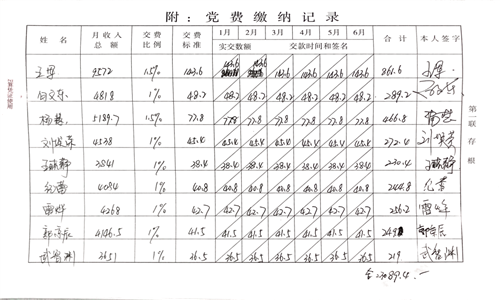 附：党费缴纳记录
姓名 月收入总额 交费比例 交费标准 1月 2月 3月 4月 5月 6月 合计 本人签字
实交数额 交款时间和签名
9572 1.5% 143.6 143.6 143.6 143.6 143.6 143.6 143.6 861.6
4818 1% 48.2 48.2 48.2 48.2 48.2 48.2 48.2 289.2
杨慧 5189.7 1.5% 77.8 77.8 77.8 77.8 77.8 77.8 77.8 466.8 杨慧
4538 1% 45.4 45.4 45.4 45.4 45.4 45.4 45.4 272.4
3841 1% 38.4 38.4 38.4 38.4 38.4 38.4 38.4 230.4
4084 1% 40.8 40.8 40.8 40.8 40.8 40.8 40.8 244.8
雷烨 4268 1% 42.7 42.7 42.7 42.7 42.7 42.7 42.7 256.2
4146.5 1% 41.5 41.5 41.5 41.5 41.5 41.5 41.5 249
武智渊 3651 1% 36.5 36.5 36.5 36.5 36.5 36.5 36.5 219 武智渊
3089.4
第一联 存根